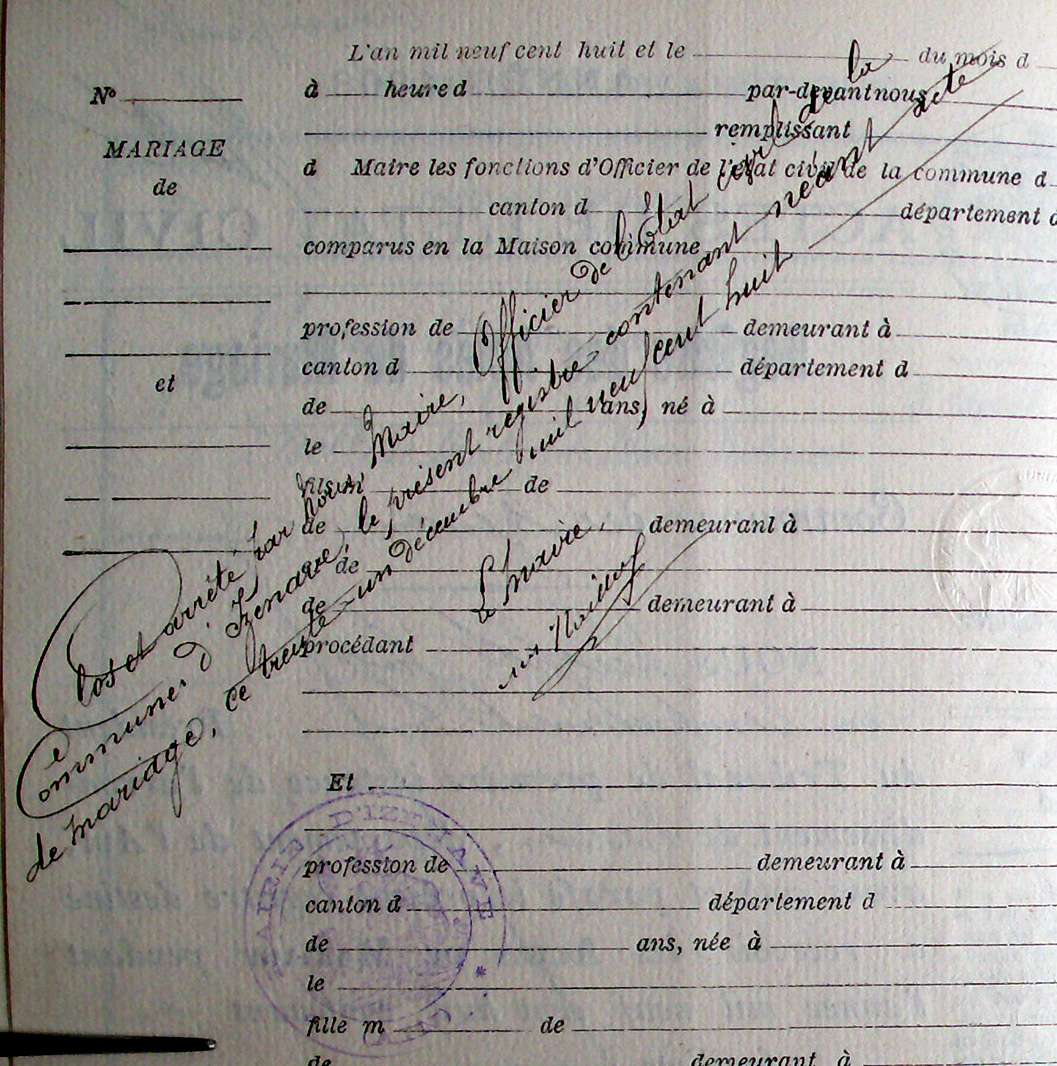 L'an mil neuf cent huit et le du mois d
à heure d par-devant nous
remplissant
d Maire les fonctions d'Officier de l'état civil de la commune d
canton d département d
comparus en la Maison commune
profession de demeurant à
canton d département d
de ans, né à
le
fils m de
de demeurant à
et de
de demeurant à
procédant
Et
profession de demeurant à
canton d département d
de ans, née à
le
fille m de
de demeurant à
N°
MARIAGE
de
et
Clos et arrêté par nous Maire, Officier de l'état civil de la
Commune d'Izenave, le présent registre contenant néant acte
de mariage, ce trente-un décembre mil neuf cent huit
Le Maire,
MAIRIE D'IZENAVE